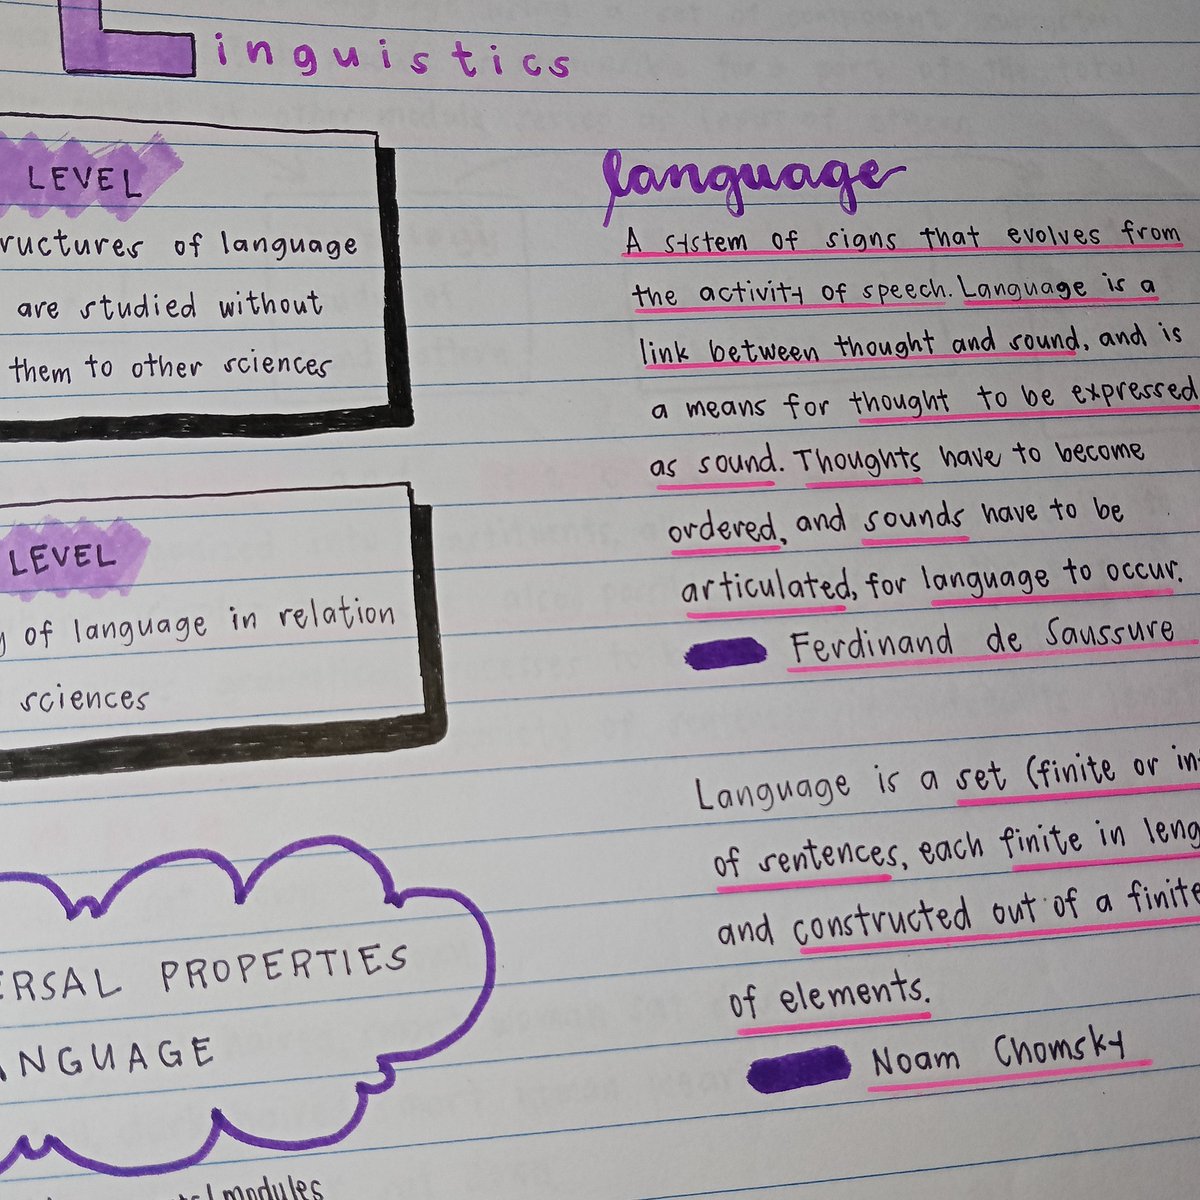 Linguistics
LEVEL
ructures of language
are studied without
them to other sciences
LEVEL
of language in relation
sciences
ERSAL PROPERTIES
ANGUAGE
modules
language
A system of signs that evolves from
the activity of speech. Language is a
link between thought and sound, and is
a means for thought to be expressed
as sound. Thoughts have to become
ordered, and sounds have to be
articulated, for language to occur.
Ferdinand de Saussure
Language is a set (finite or in
of sentences, each finite in leng
and constructed out of a finite
of elements.
Noam Chomsky